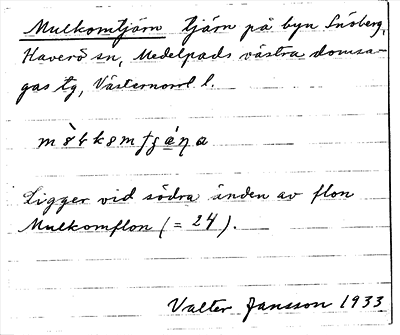 Mulkomtjärn tjärn på byn Snöberg,
Haverö sn, Medelpads västra domsa-
gas tg, Västernorrl. l.
Ligger vid södra änden av flon
Mulkomflon (= 24).
Valter Jansson 1933